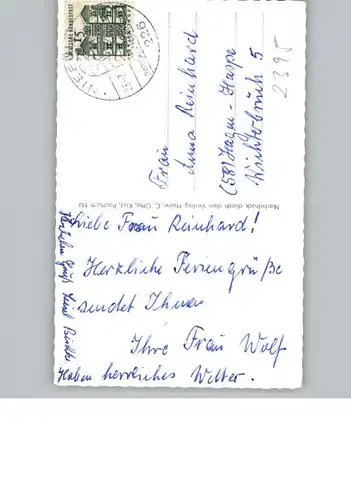 Liebe Frau Reinhard!
Herzliche Feriengrüße
sendet Ihnen
Ihre Frau Wolf
Haben herrliches Wetter.
Herzlichen Gruß
Frau
Anna Reinhard
(58) Hagen-Haspe
5
2395
Nachdruck durch den Verlag Heinr. C. Otto, Kiel, Postfach 152
15
226